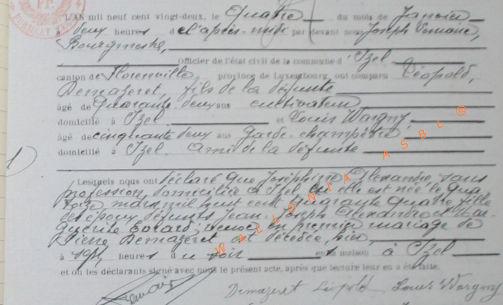 L'AN mil neuf cent vingt-deux, le Quatre du mois de Janvier
à deux heures de l'après-midi par devant nous Joseph
Bourgmestre,
Officier de l'état civil de la commune d'Izel
canton de Florenville province de Luxembourg, ont comparu Léopold
Demazeret, fils de la défunte
âgé de Quarante deux ans cultivateur
domicilié à Izel et Louis Wargny
âgé de cinquante deux ans Garde-champêtre
domicilié à Izel Ami de la défunte
Lesquels nous ont déclaré que Joséphine Alexandre, sans
profession, domiciliée à Izel, où elle est née le qua
torze mars mil huit cent quatre fille
des époux défunts Jean Joseph Alexandre et Mar
guerite veuve en premier mariage de
Pierre Demazeret est décédée, hier,
à heures du soir en maison à Izel
et ont les déclarants signé avec nous le présent acte, après que lecture leur en a été faite.
Demazeret Léopold Louis Wargny
WALLONIA ASBL ©